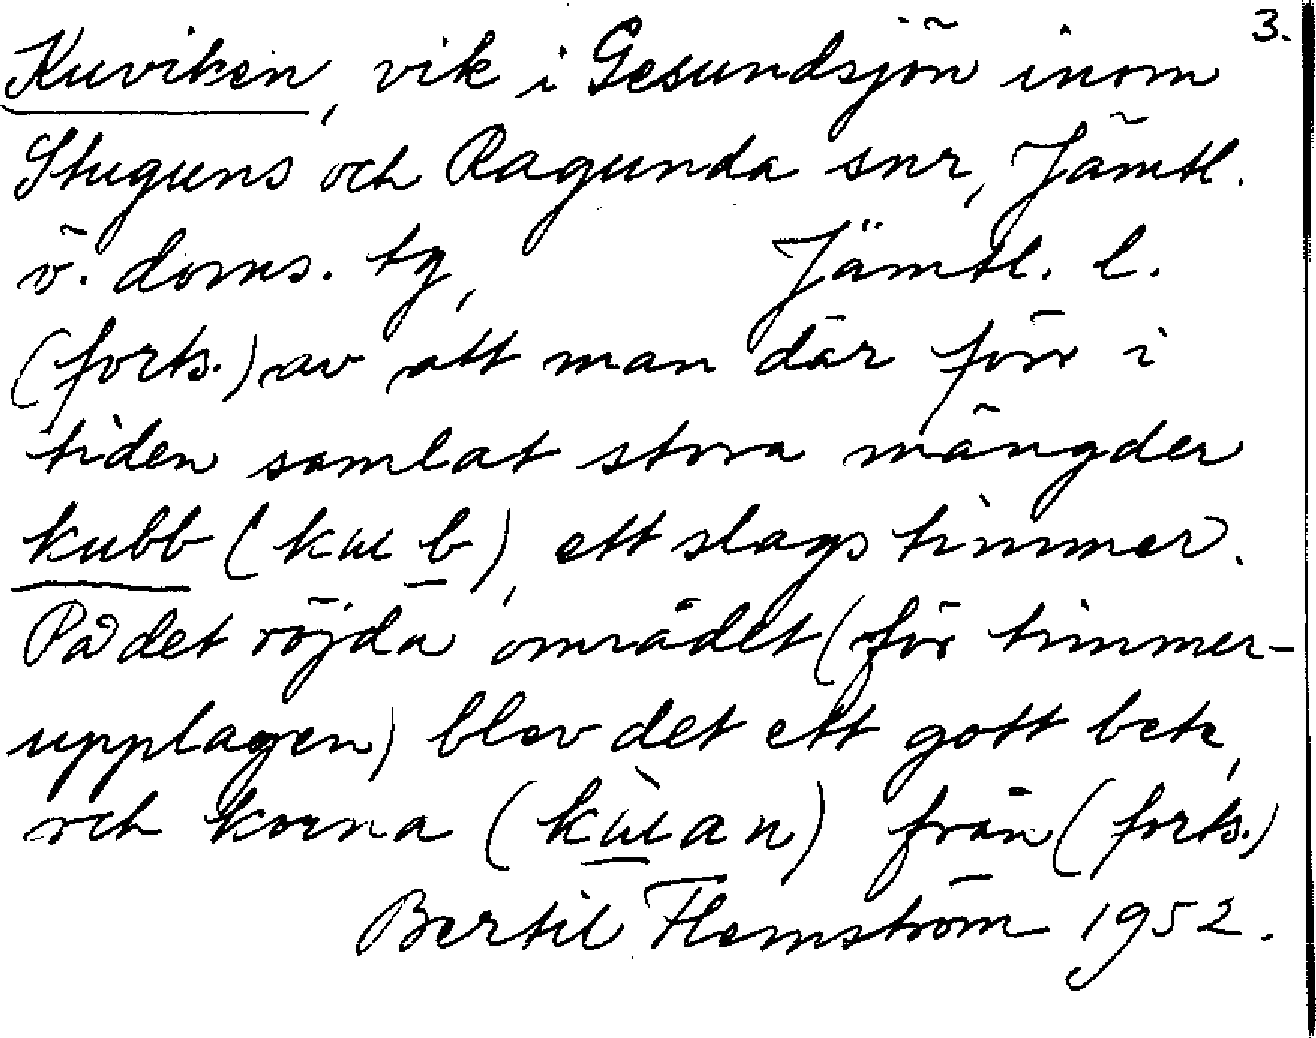 3.
Kuviken, vik i Gesundsjön inom
Stuguns och Ragunda snr, Jämtl.
v. doms. tg, Jämtl. l.
(forts.) av att man där förr i
tiden samlat stora mängder
kubb (kɯb), ett slags timmer.
På det röjda området (för timmer-
upplagen) blev det ett gott bete,
och korna (kɯ̀an) från (forts.)
Bertil Flemström 1952.